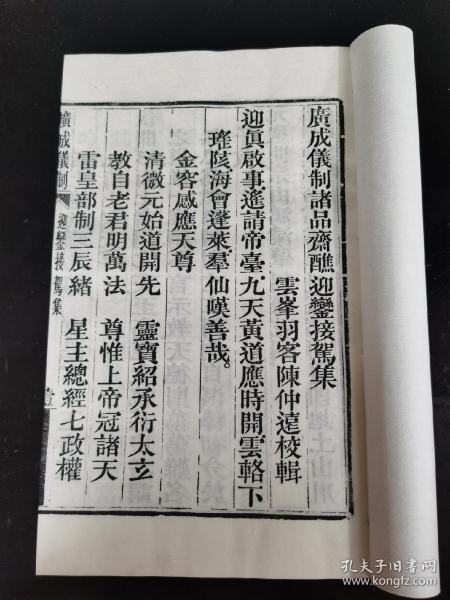 廣成儀制諸品齋醮迎鑾接駕集
雲峯羽客陳仲遠校輯
迎眞啟事遙請帝臺九天黃道應時開雲輅下
瑤陔海會蓬萊羣仙嘆善哉。
金容感應天尊
清微元始道開先 靈寶紹承衍太玄
教自老君明萬法 尊惟上帝冠諸天
雷皇部制三辰緒 星主總經七政權
廣成儀制 迎鑾接駕集 壹
孔夫子旧书网
www.kongfz.com